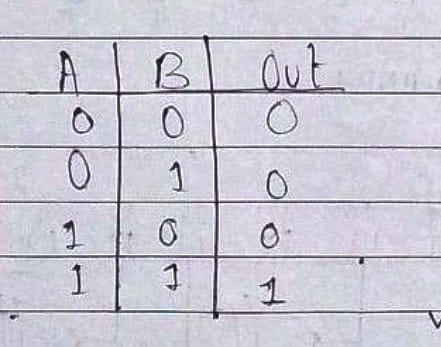 A B Out
0 0 0
0 1 0
1 0 0
1 1 1